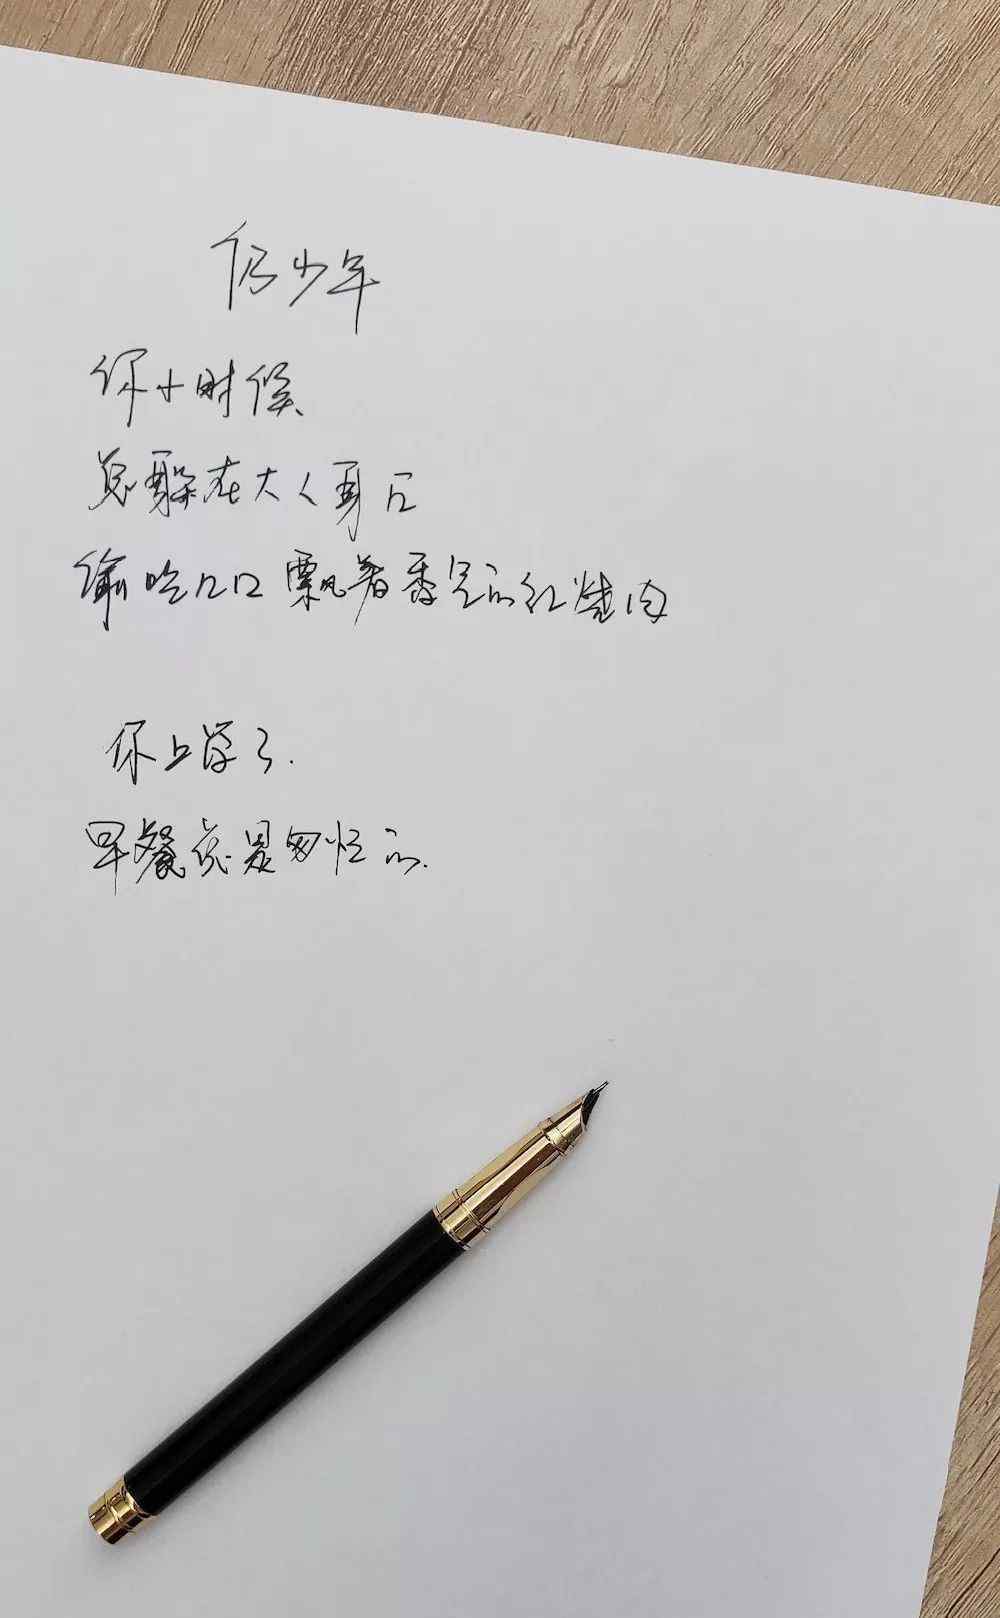 仍少年
你小时候
总躲在大人身后
偷吃几口飘着香气的红烧肉
你上学了.
早餐总是匆忙的.